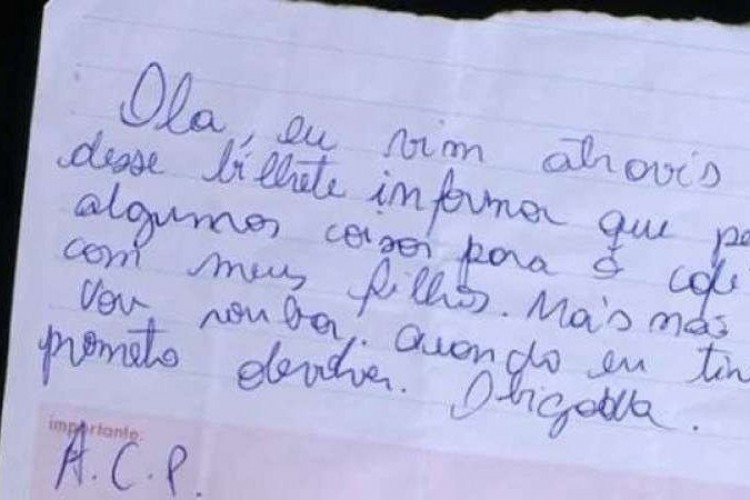 Ola, eu vim atravís
desse bilhete informar que pe
algumas coisas para o cafe
com meus filhos. Mas nás
vou roubar. Quando eu tin
prometo devolver. Obigadda.
importante:
A.C.P.